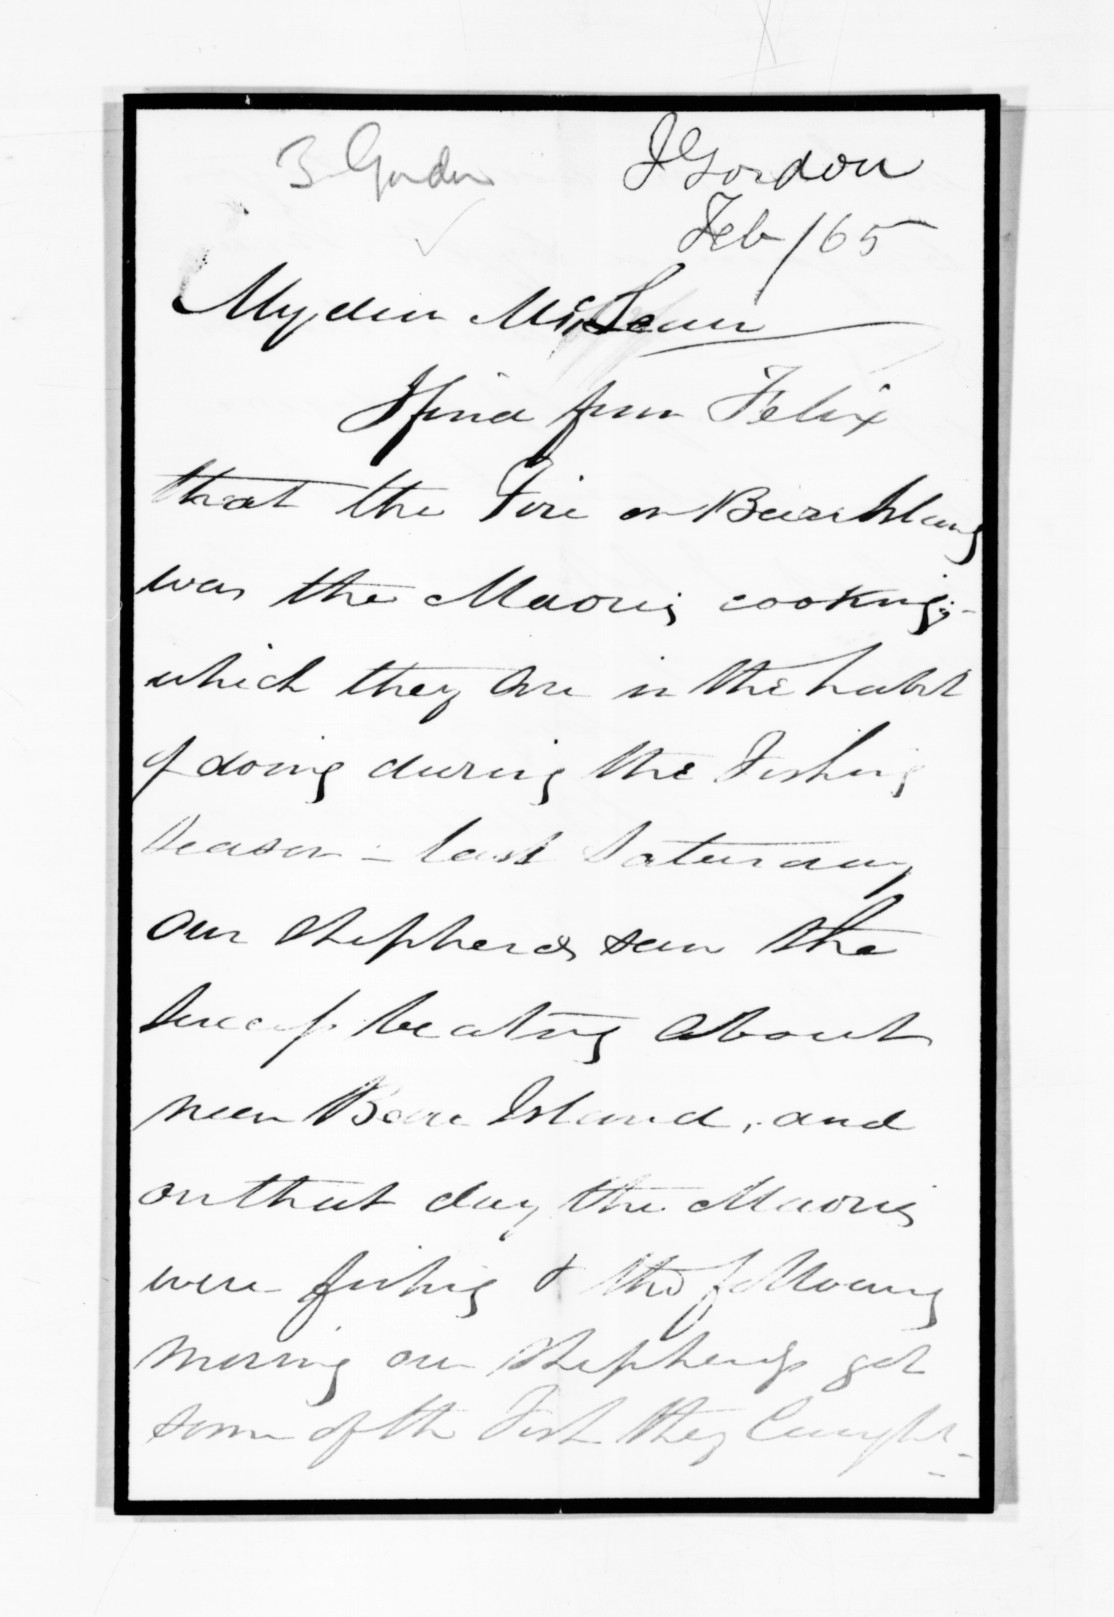 3 Gordon
J Gordon
Feb /65
My dear McLean
I find from Felix
that the Fire on Bare Island
was the Maoris cooking;-
which they are in the habit
of doing during the Fishing
season - last Saturday
our shepherds saw the
beating about
near Bare Island, and
on that day the Maoris
were fishing & the following
morning our shepherds got
some of the Fish they Caught -